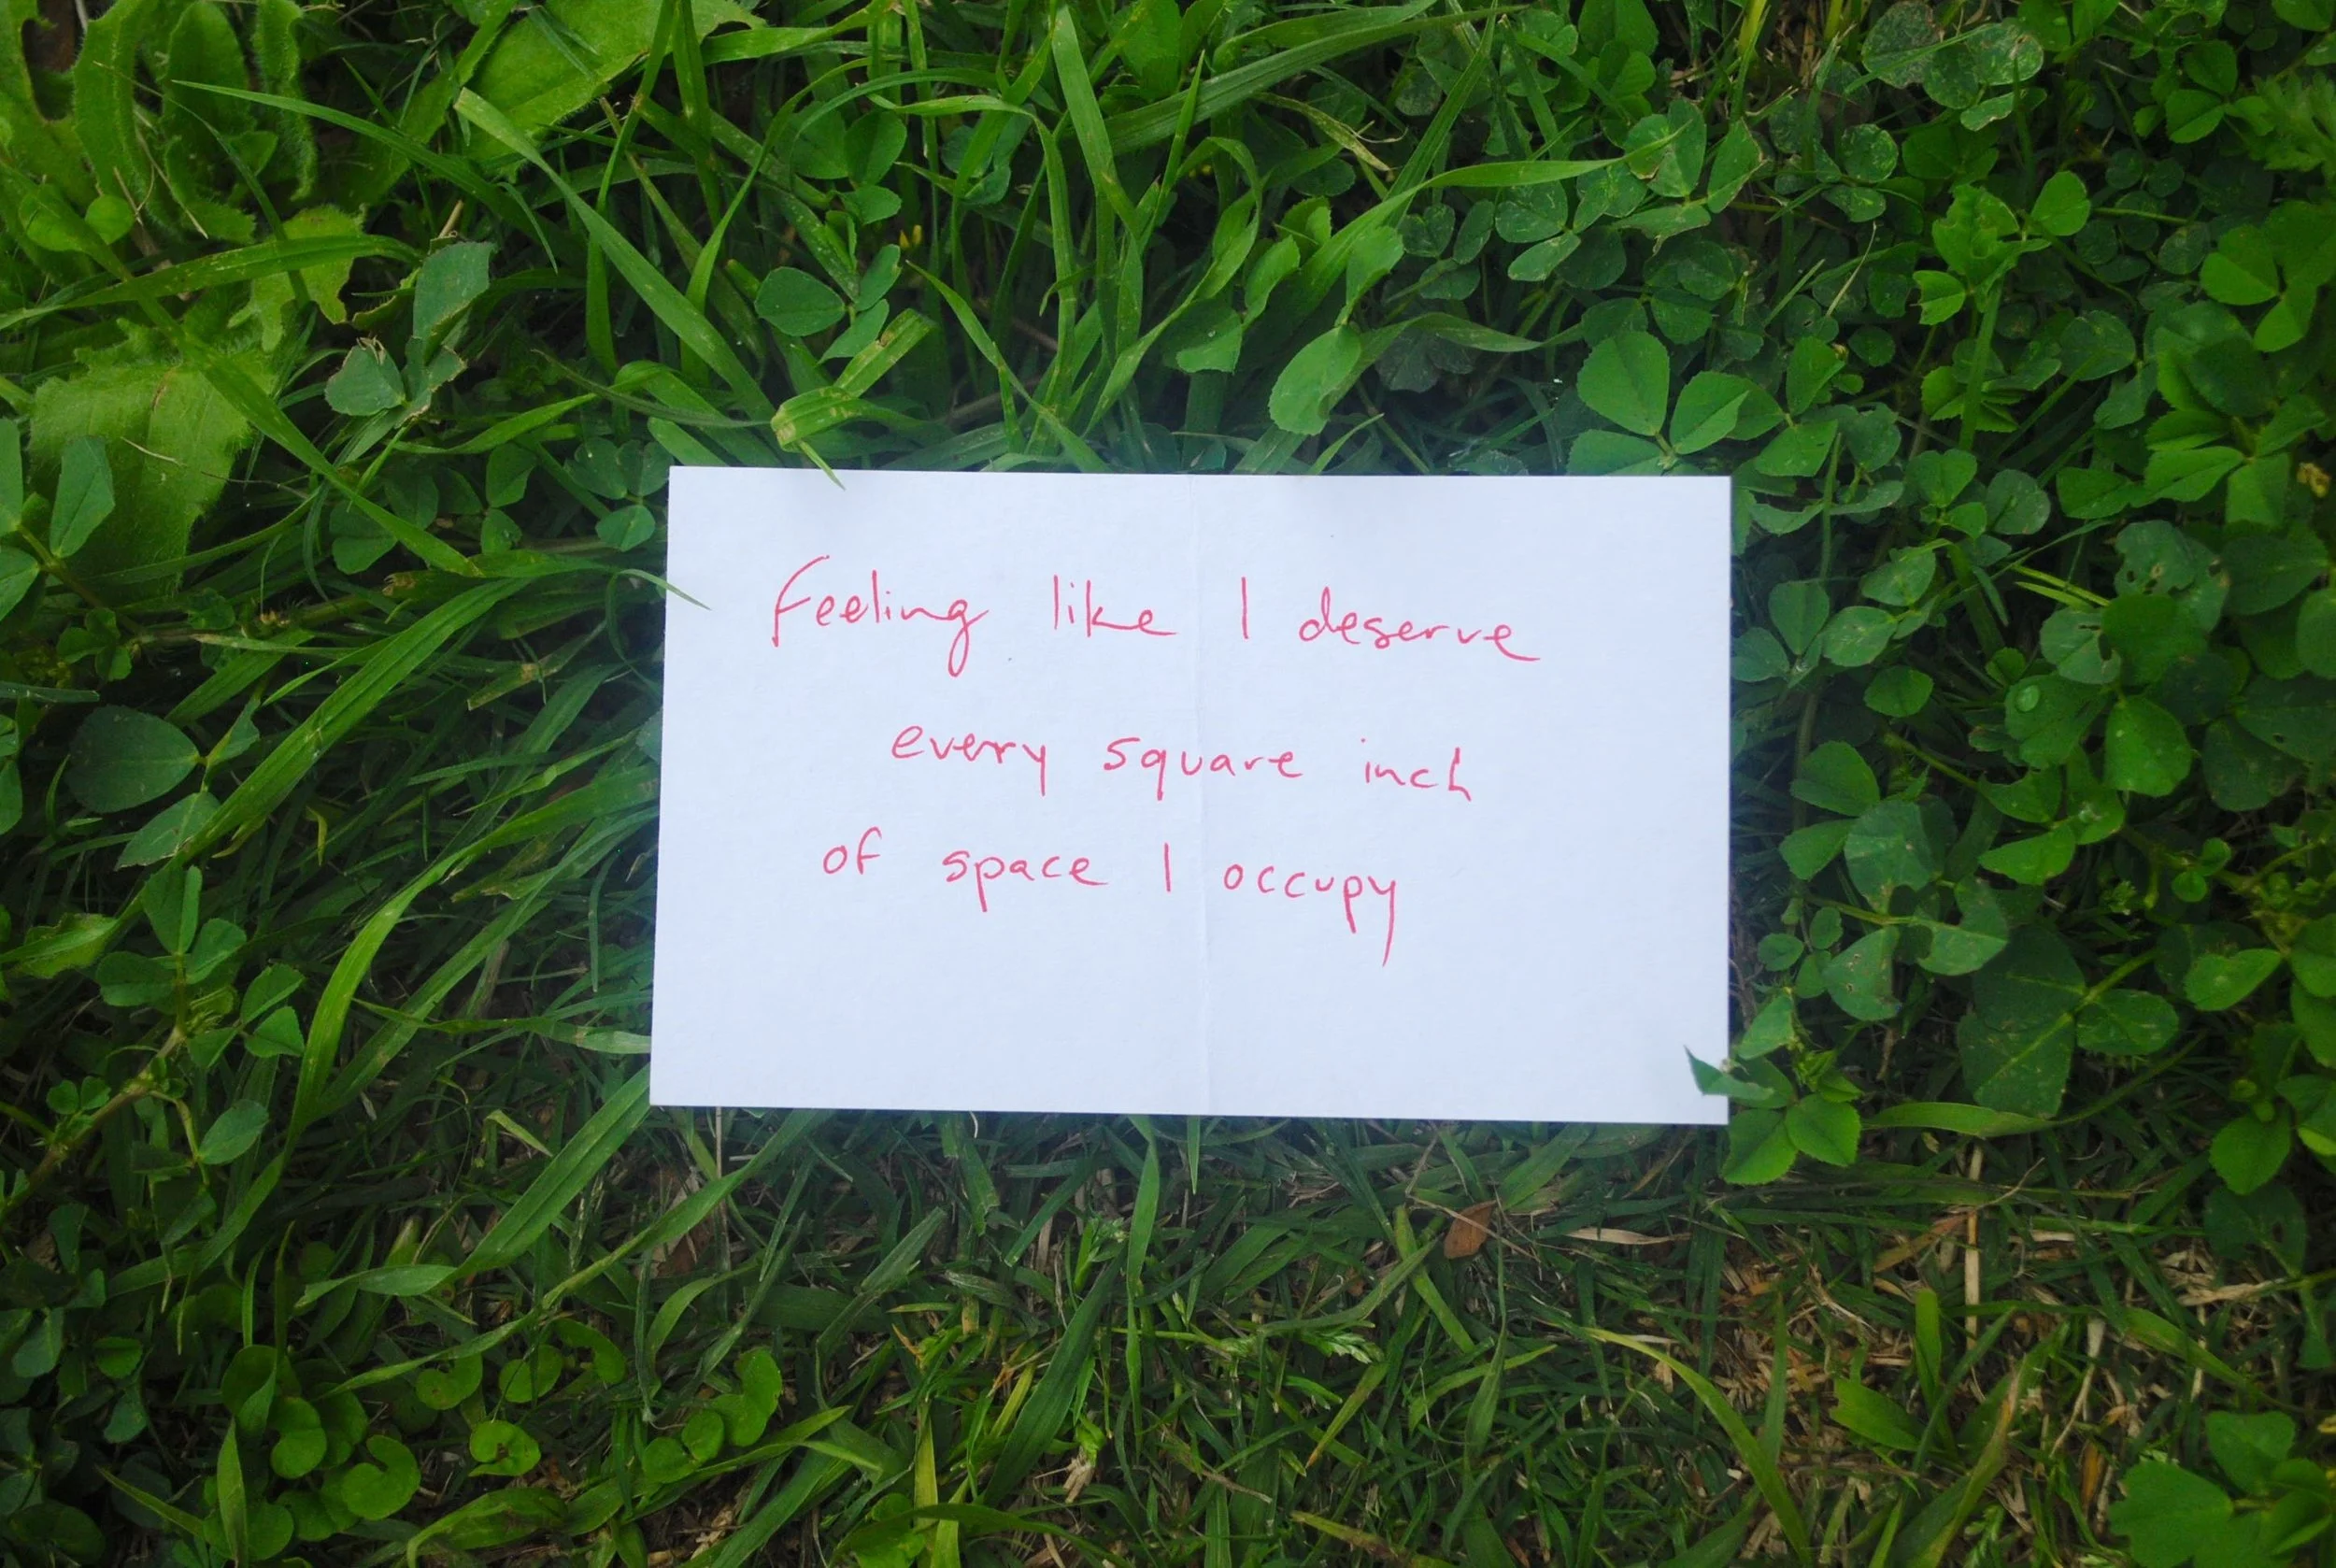 Feeling like I deserve
every square inch
of space I occupy